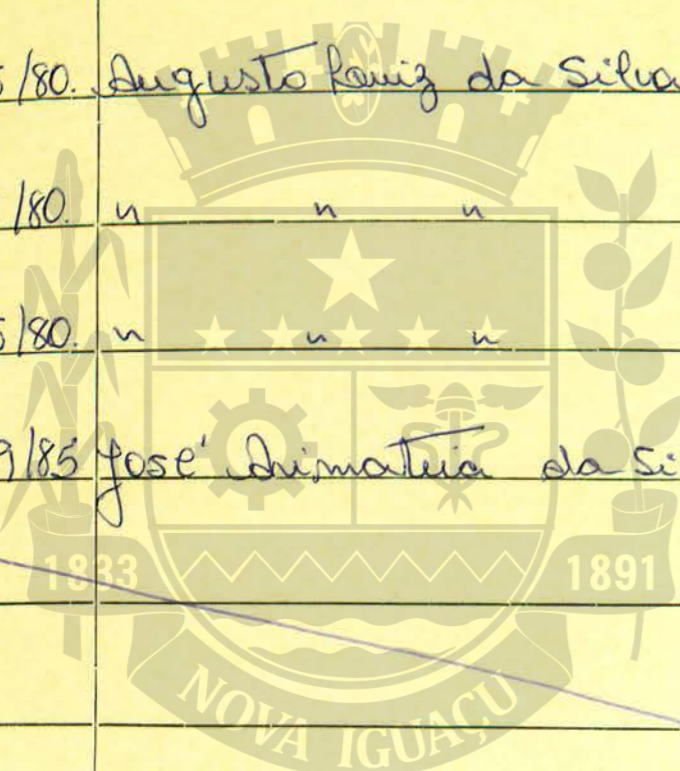 5/80. Augusto Luiz da Silva
/80. " " "
5/80. " " "
9/85 José Arimatéia da Si
1833 1891
NOVA IGUAÇU